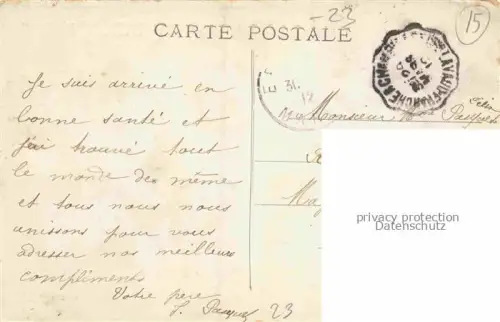 -23
15
CARTE POSTALE
LAVAUFRANCHE
31.
12
Je suis arrivé en
bonne santé et
j'ai trouvé tout
le monde de même
et tous nous nous
unissons pour vous
adresser nos meilleurs
compliments
Votre pere
23
Monsieur
privacy protection
Datenschutz